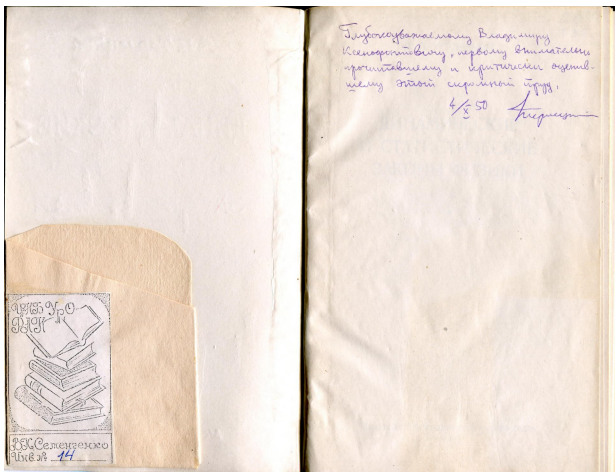 Глубокоуважаемому Владимиру
Ксенофонтовичу, первому внимательно
прочитавшему и критически оценив-
шему этот скромный труд.
4/X 50
УрО
РАН
В.К.Семенченко
Инв № 14